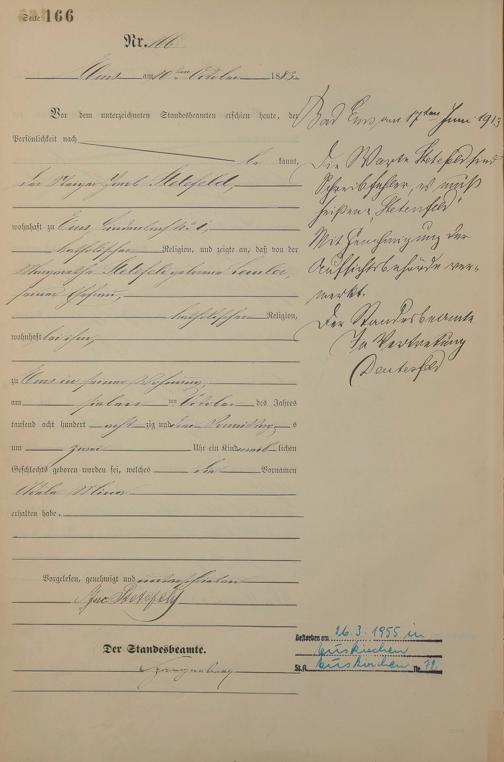 Seite 166
Nr. 166
Ems am 10ten October 1883
Vor dem unterzeichneten Standesbeamten erschien heute, der
Persönlichkeit nach
be kannt,
der Jacob Stetefeld,
wohnhaft zu Ems,
katholischer Religion, und zeigte an, daß von der
Margaretha Stetefeld geborene
seiner Ehefrau,
katholischer Religion,
wohnhaft bei ihm,
zu Ems in seiner Wohnung,
am sieben ten October des Jahres
tausend acht hundert acht zig und drei Vormittags
um zwei Uhr ein Kind weib lichen
Geschlechts geboren worden sei, welches die Vornamen
erhalten habe.
Vorgelesen, genehmigt und unterschrieben
Jac Stetefeld
Der Standesbeamte.
Bad Ems, am 17ten Juni 1913
Die Worte Stetefeld sind
Schreibfehler, es muß
heißen: „Stetenfeld“
Mit Genehmigung der
Aufsichtsbehörde ver-
merkt.
Der Standesbeamte
In Vertretung
Gestorben am 26.3.1955 in
Euskirchen
St.A. Euskirchen Nr.